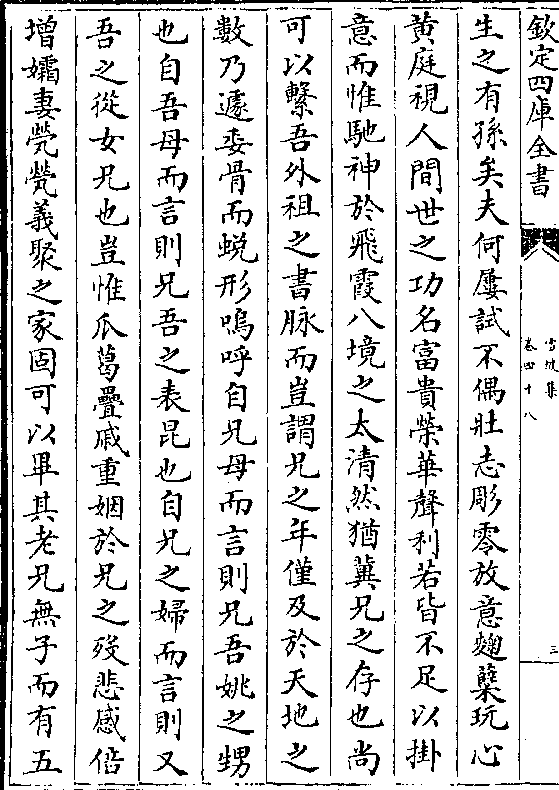 欽定四庫全書
雪坡集
卷四十八
三
生之有孫矣夫何屢試不偶壯志彫零放意麴櫱玩心
黄庭視人間世之功名富貴榮華聲利若皆不足以掛
意而惟馳神於飛霞八境之太清然猶冀兄之存也尚
可以繫吾外祖之書脉而豈謂兄之年僅及於天地之
數乃遽委骨而蜕形嗚呼自兄母而言則兄吾姚之甥
也自吾母而言則兄吾之表昆也自兄之婦而言則又
吾之從女兄也豈惟瓜葛疊戚重姻於兄之殁悲感倍
增孀妻煢煢義聚之家固可以畢其老兄無子而有五